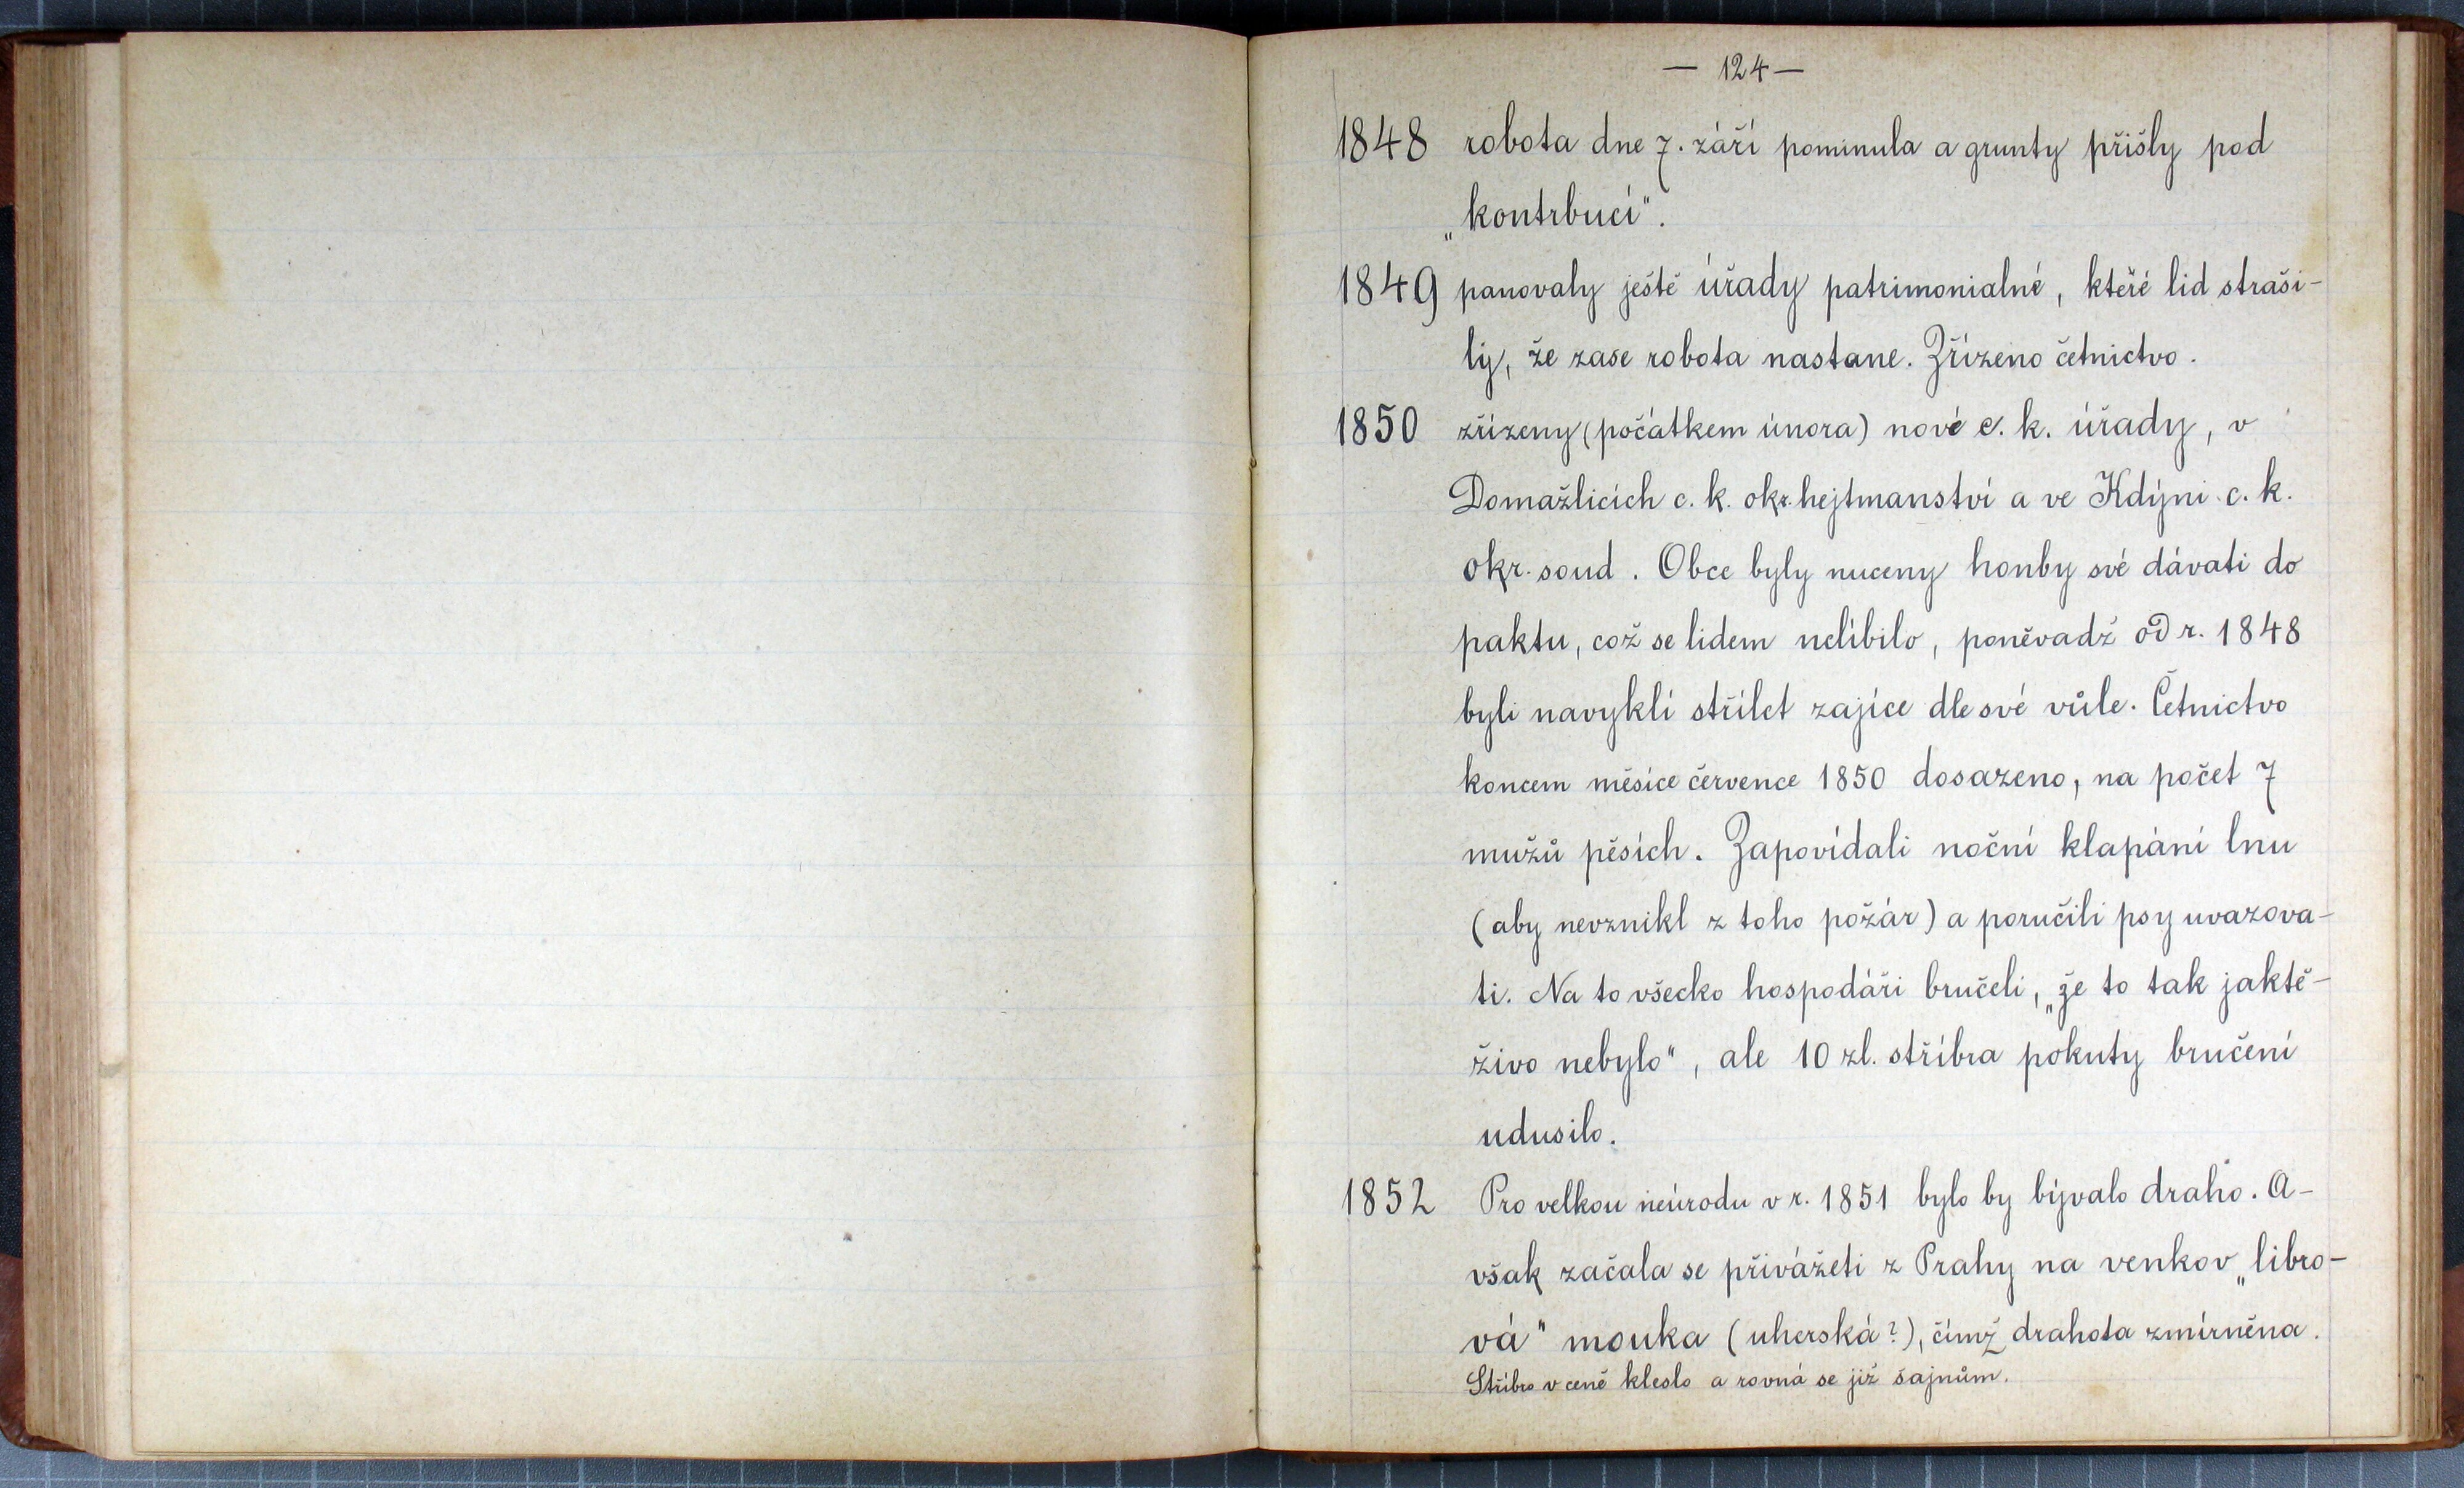 — 124 —
1848 robota dne 7. září pominula a grunty přišly pod
„kontrbucí“.
1849 panovaly ještě úřady patrimonialné, kteřé lid straši-
ly, že zase robota nastane. Zřízeno četnictvo.
1850 zřízeny (počátkem února) nové c. k. úřady, v
Domažlicích c. k. okr. hejtmanství a ve Kdýni c. k.
okr. soud. Obce byly nuceny honby své dávati do
paktu, což se lidem nelíbilo, poněvadž od r. 1848
byli navyklí střílet zajíce dle své vůle. Četnictvo
koncem měsíce července 1850 dosazeno, na počet 7
mužů pěsích. Zapovídali noční klapání lnu
(aby nevznikl z toho požár) a poručili psy uvazova-
ti. Na to všecko hospodáři bručeli, „že to tak jaktě-
živo nebylo“, ale 10 zl. stříbra pokuty bručení
udusilo.
1852 Pro velkou neúrodu v r. 1851 bylo by bývalo draho. A-
však začala se přivážeti z Prahy na venkov „libro-
vá“ mouka (uherská?), čímž drahota zmírněna.
Stříbro v ceně kleslo a rovná se již šajnům.